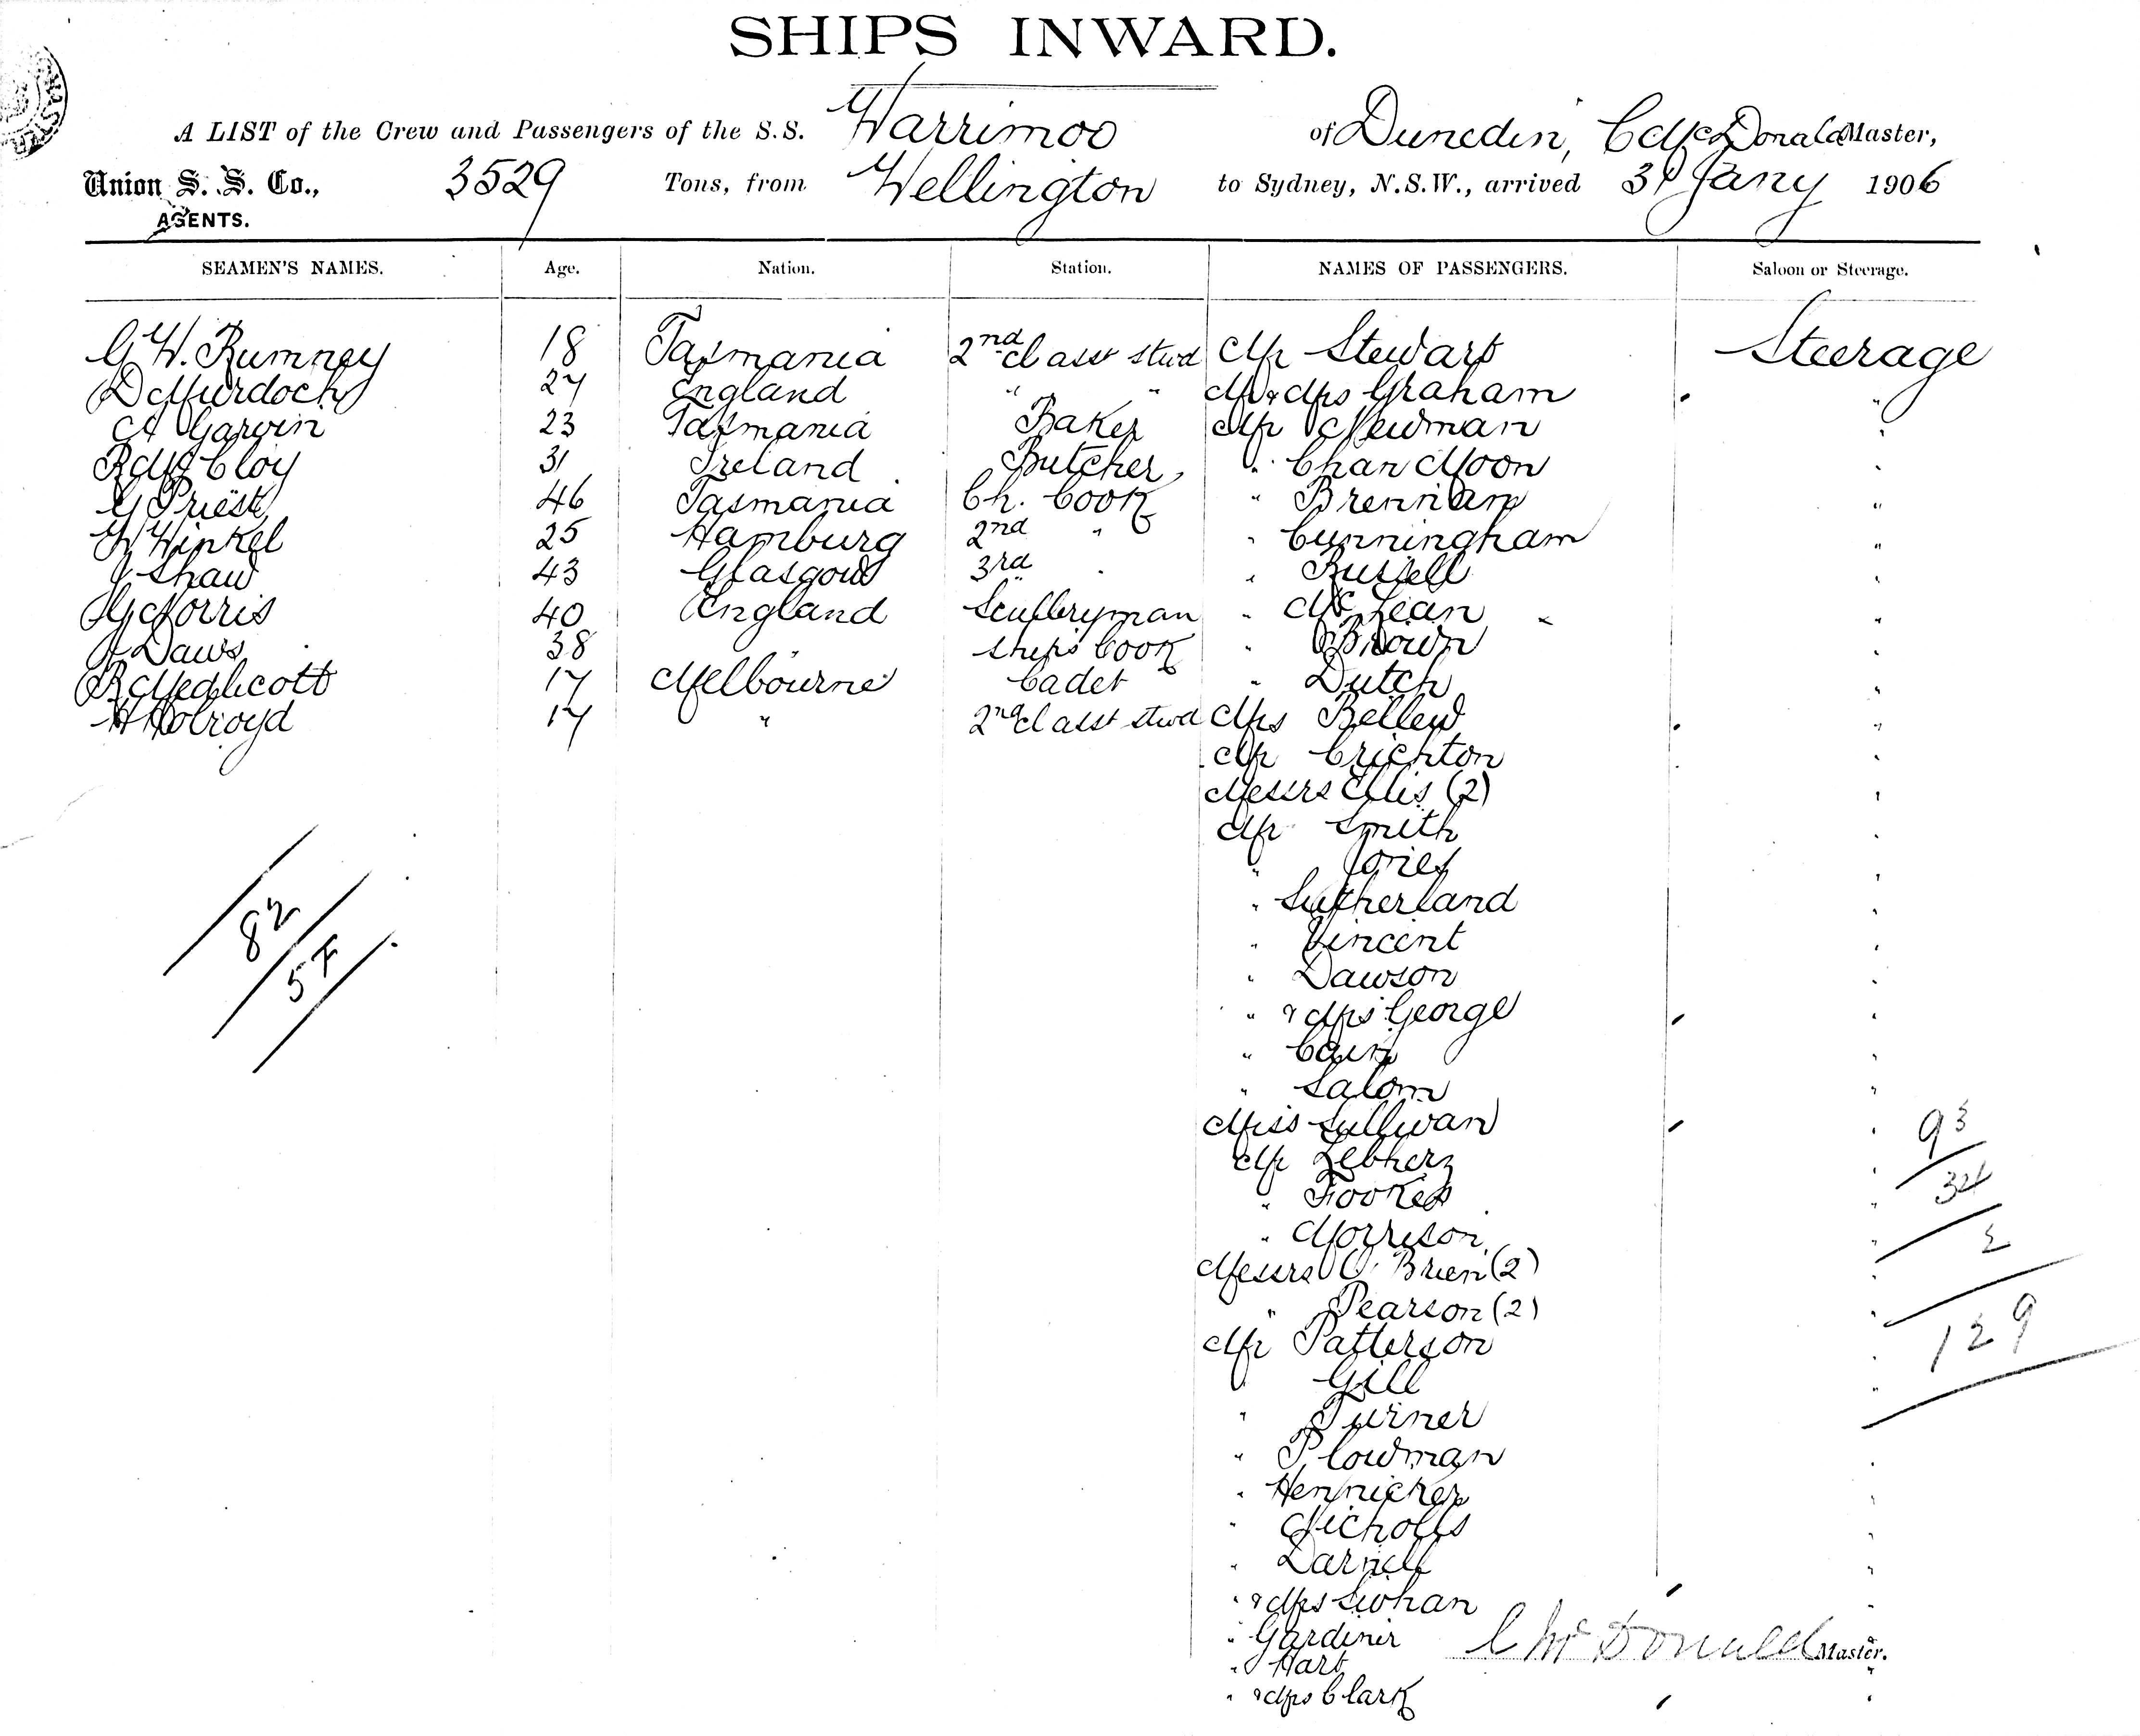 SHIPS INWARD.
A LIST of the Crew and Passengers of the S.S. Warrimoo of Dunedin, C McDonald Master,
Union S. S. Co., 3529 Tons, from Wellington to Sydney, N.S.W., arrived 31 Jany 1906
AGENTS.
SEAMEN'S NAMES. Age. Nation. Station. NAMES OF PASSENGERS. Saloon or Steerage.
G W. Rumney 18 Tasmania 2nd Class stwd Mr Stewart Steerage
D Murdoch 27 England " " Mr & Mrs Graham "
A Garvin 23 Tasmania Baker Mr Newman "
R McCloy 31 Ireland Butcher " Chan Moon "
G Priest 46 Tasmania Ch. Cook " Brennan "
W Winkel 25 Hamburg 2nd " " Cunningham "
J Shaw 43 Glasgow 3rd " " Russell "
G Norris 40 England Sculleryman " McLean "
J Daws 38 " Ships Cook " Brown "
R Medlicott 17 Melbourne Cadet " Dutch "
H Holroyd 17 " 2nd Class stwd Mrs Bellew "
Mr Crichton "
Messrs Ellis (2) "
Mr Smith "
" Jones "
" Sutherland "
" Vincent "
" Dawson "
" & Mrs George "
" Cain "
" Salom "
Miss Sullivan "
Mr Lebherz "
" Fookes "
" Morrison "
Messrs O'Brien (2) "
" Pearson (2) "
Mr Patterson "
" Gill "
" Turner "
" Plowman "
" Hennicker "
" Nicholls "
" Darnell "
" & Mrs Swhan "
" Gardiner "
" Hart "
" & Mrs Clark "
82
57
93
34
2
129
C McDonald Master.